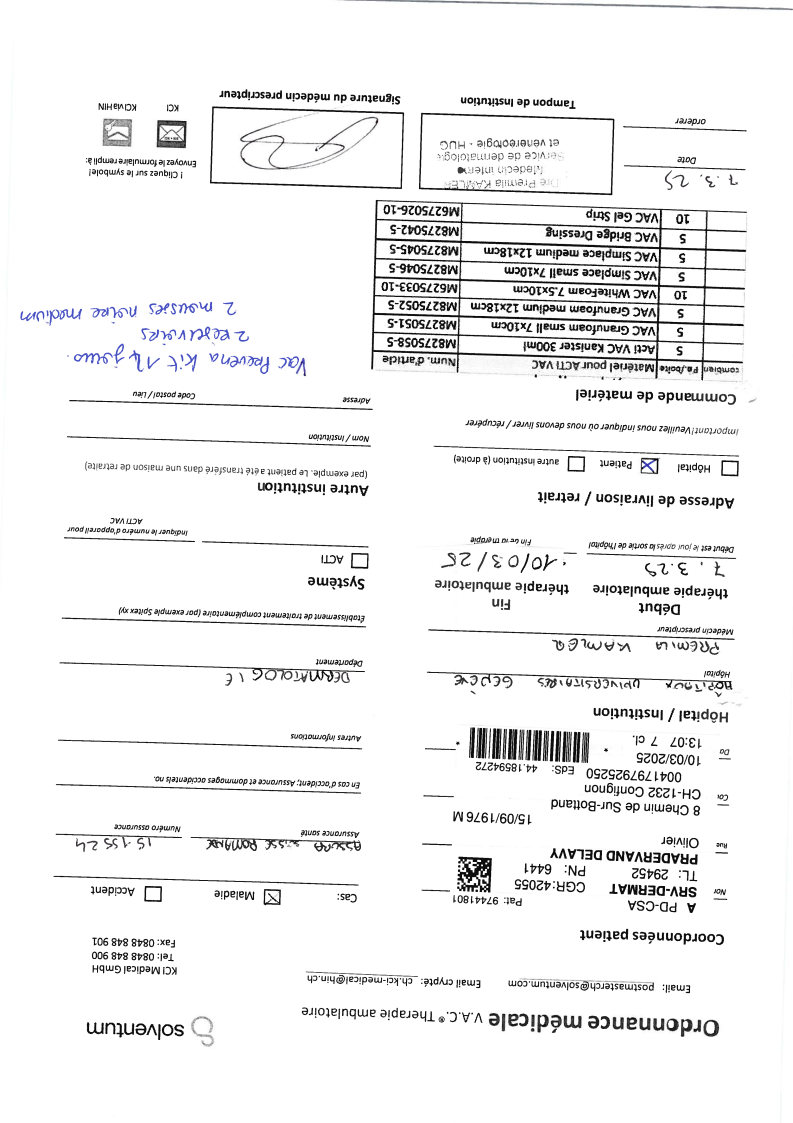 Ordonnance médicale V.A.C.® Therapie ambulatoire
solventum
Email: postmasterch@solventum.com Email crypté: ch.kci-medical@hin.ch
KCI Medical GmbH
Tel: 0848 848 900
Fax: 0848 848 901
Coordonnées patient
A PD-CSA Pat: 97441801
SRV-DERMAT CGR:42055
TL: 29452 PN: 6441
PRADERVAND DELAVY
Olivier
15/09/1976 M
8 Chemin de Sur-Bottand
CH-1232 Confignon
0041797925250 EdS: 44.18594272
10/03/2025
13:07 7 cl.
Nor
Rue
Cas: Maladie Accident
ASSURA SUISSE ROMANDE 15 155 24
Assurance santé Numéro assurance
En cas d'accident; Assurance et dommages accidentels no.
Autres informations
Hôpital / Institution
HÔPITAUX UNIVERSITAIRES GENÈVE
Hôpital
DERMATOLOGIE
Département
PREMILA KAMLER
Médecin prescripteur
Établissement de traitement complémentaire (par exemple Spitex xy)
Début
thérapie ambulatoire
Fin
thérapie ambulatoire
7. 3. 25
10/03/25
Début est le jour après la sortie de l'hôpital
Fin de la thérapie
Système
ACTI
Indiquer le numéro d'appareil pour
ACTI VAC
Adresse de livraison / retrait
Hôpital Patient autre institution (à droite)
Important! Veuillez nous indiquer où nous devons livrer / récupérer
Autre institution
(par exemple. Le patient a été transféré dans une maison de retraite)
Nom / Institution
Adresse Code postal / Lieu
Commande de matériel
combien Pa./boîte Matériel pour ACTI VAC Num. d'article
5 Acti VAC Kanister 300ml M8275058-5
5 VAC Granufoam small 7x10cm M8275051-5
5 VAC Granufoam medium 12x18cm M8275052-5
10 VAC WhiteFoam 7.5x10cm M6275033-10
5 VAC Simplace small 7x10cm M8275046-5
5 VAC Simplace medium 12x18cm M8275045-5
5 VAC Bridge Dressing M8275042-5
10 VAC Gel Strip M6275026-10
Vac Prevena Kit 14 jours.
2 reservoires
2 mousses noire medium
7. 3. 25
Date
orderer
Dre Premila KAMLER
Médecin interne
Service de dermatologie
et vénéréologie - HUG
Tampon de Institution
Signature du médecin prescripteur
! Cliquez sur le symbole!
Envoyez le formulaire rempli à:
KCI KCIviaHIN